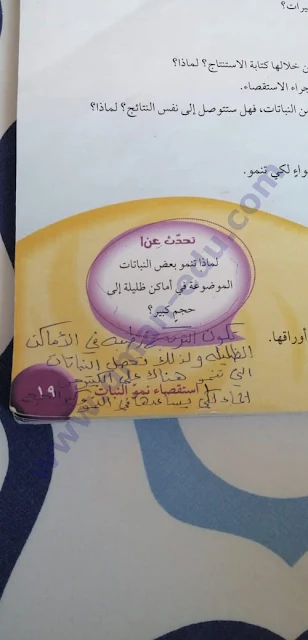 يرات؟
ن خلالها كتابة الاستنتاج؟ لماذا؟
جراء الاستقصاء.
ن النباتات، فهل ستتوصل إلى نفس النتائج؟ لماذا؟
واءٍ لكي تنمو.
تحدّث عن!
لماذا تنمو بعض النباتات
الموضوعة في أماكن ظليلة إلى
حجم كبير؟
أوراقها.
تكون التربة رطبة في الأماكن
الظليلة ولذلك تحصل النباتات
التي تنمو هناك على الكثير من
استقصاء نموّ النبات
١٩
الماء لكي يساعدها في النمو
www.oman-edu.com